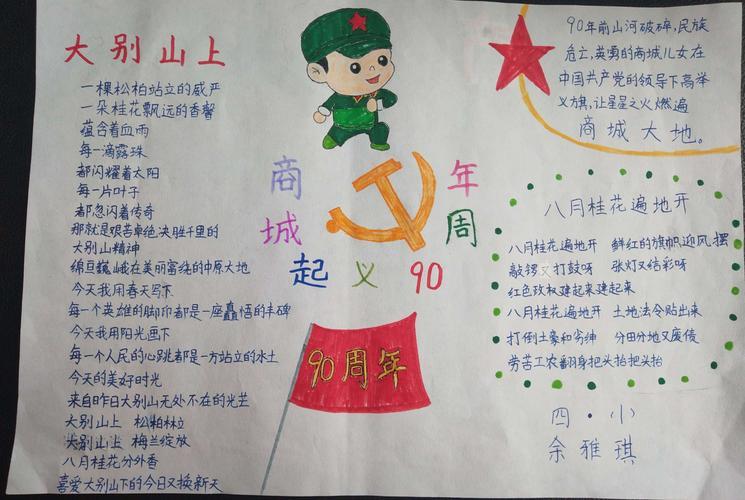 大别山上
一棵松柏站立的威严
一朵桂花飘远的香馨
蕴含着血雨
每一滴露珠
都闪耀着太阳
每一片叶子
都忽闪着传奇
那就是艰苦卓绝决胜千里的
大别山精神
绵亘巍峨在美丽富饶的中原大地
今天我用春天写下
每一个英雄的脚印都是一座矗立的丰碑
今天我用阳光画下
每一个人民的心跳都是一方站立的水土
今天的美好时光
来自昨日大别山无处不在的光芒
大别山上 松柏林立
大别山上 梅兰绽放
八月桂花分外香
喜爱大别山下的今日又换新天
商城起义90周年
90周年
90年前山河破碎,民族
危亡,英勇的商城儿女在
中国共产党的领导下高举
义旗,让星星之火燃遍
商城大地。
八月桂花遍地开
八月桂花遍地开 鲜红的旗帜迎风摆
敲锣又打鼓呀 张灯又结彩呀
红色政权建起来建起来
八月桂花遍地开 土地法令贴出来
打倒土豪和劣绅 分田分地又废债
劳苦工农翻身把头抬把头抬
四·小
余雅琪